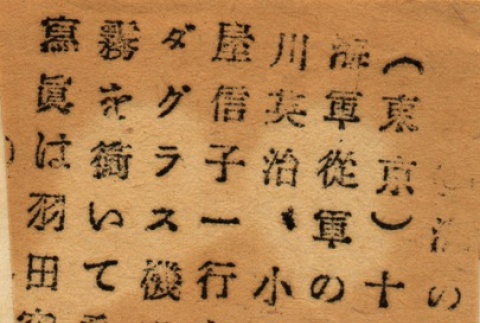 の
（東京）十
海軍從軍の
川英治、小
屋信子一行
ダグラス機
霧を衝いて
寫眞は羽田